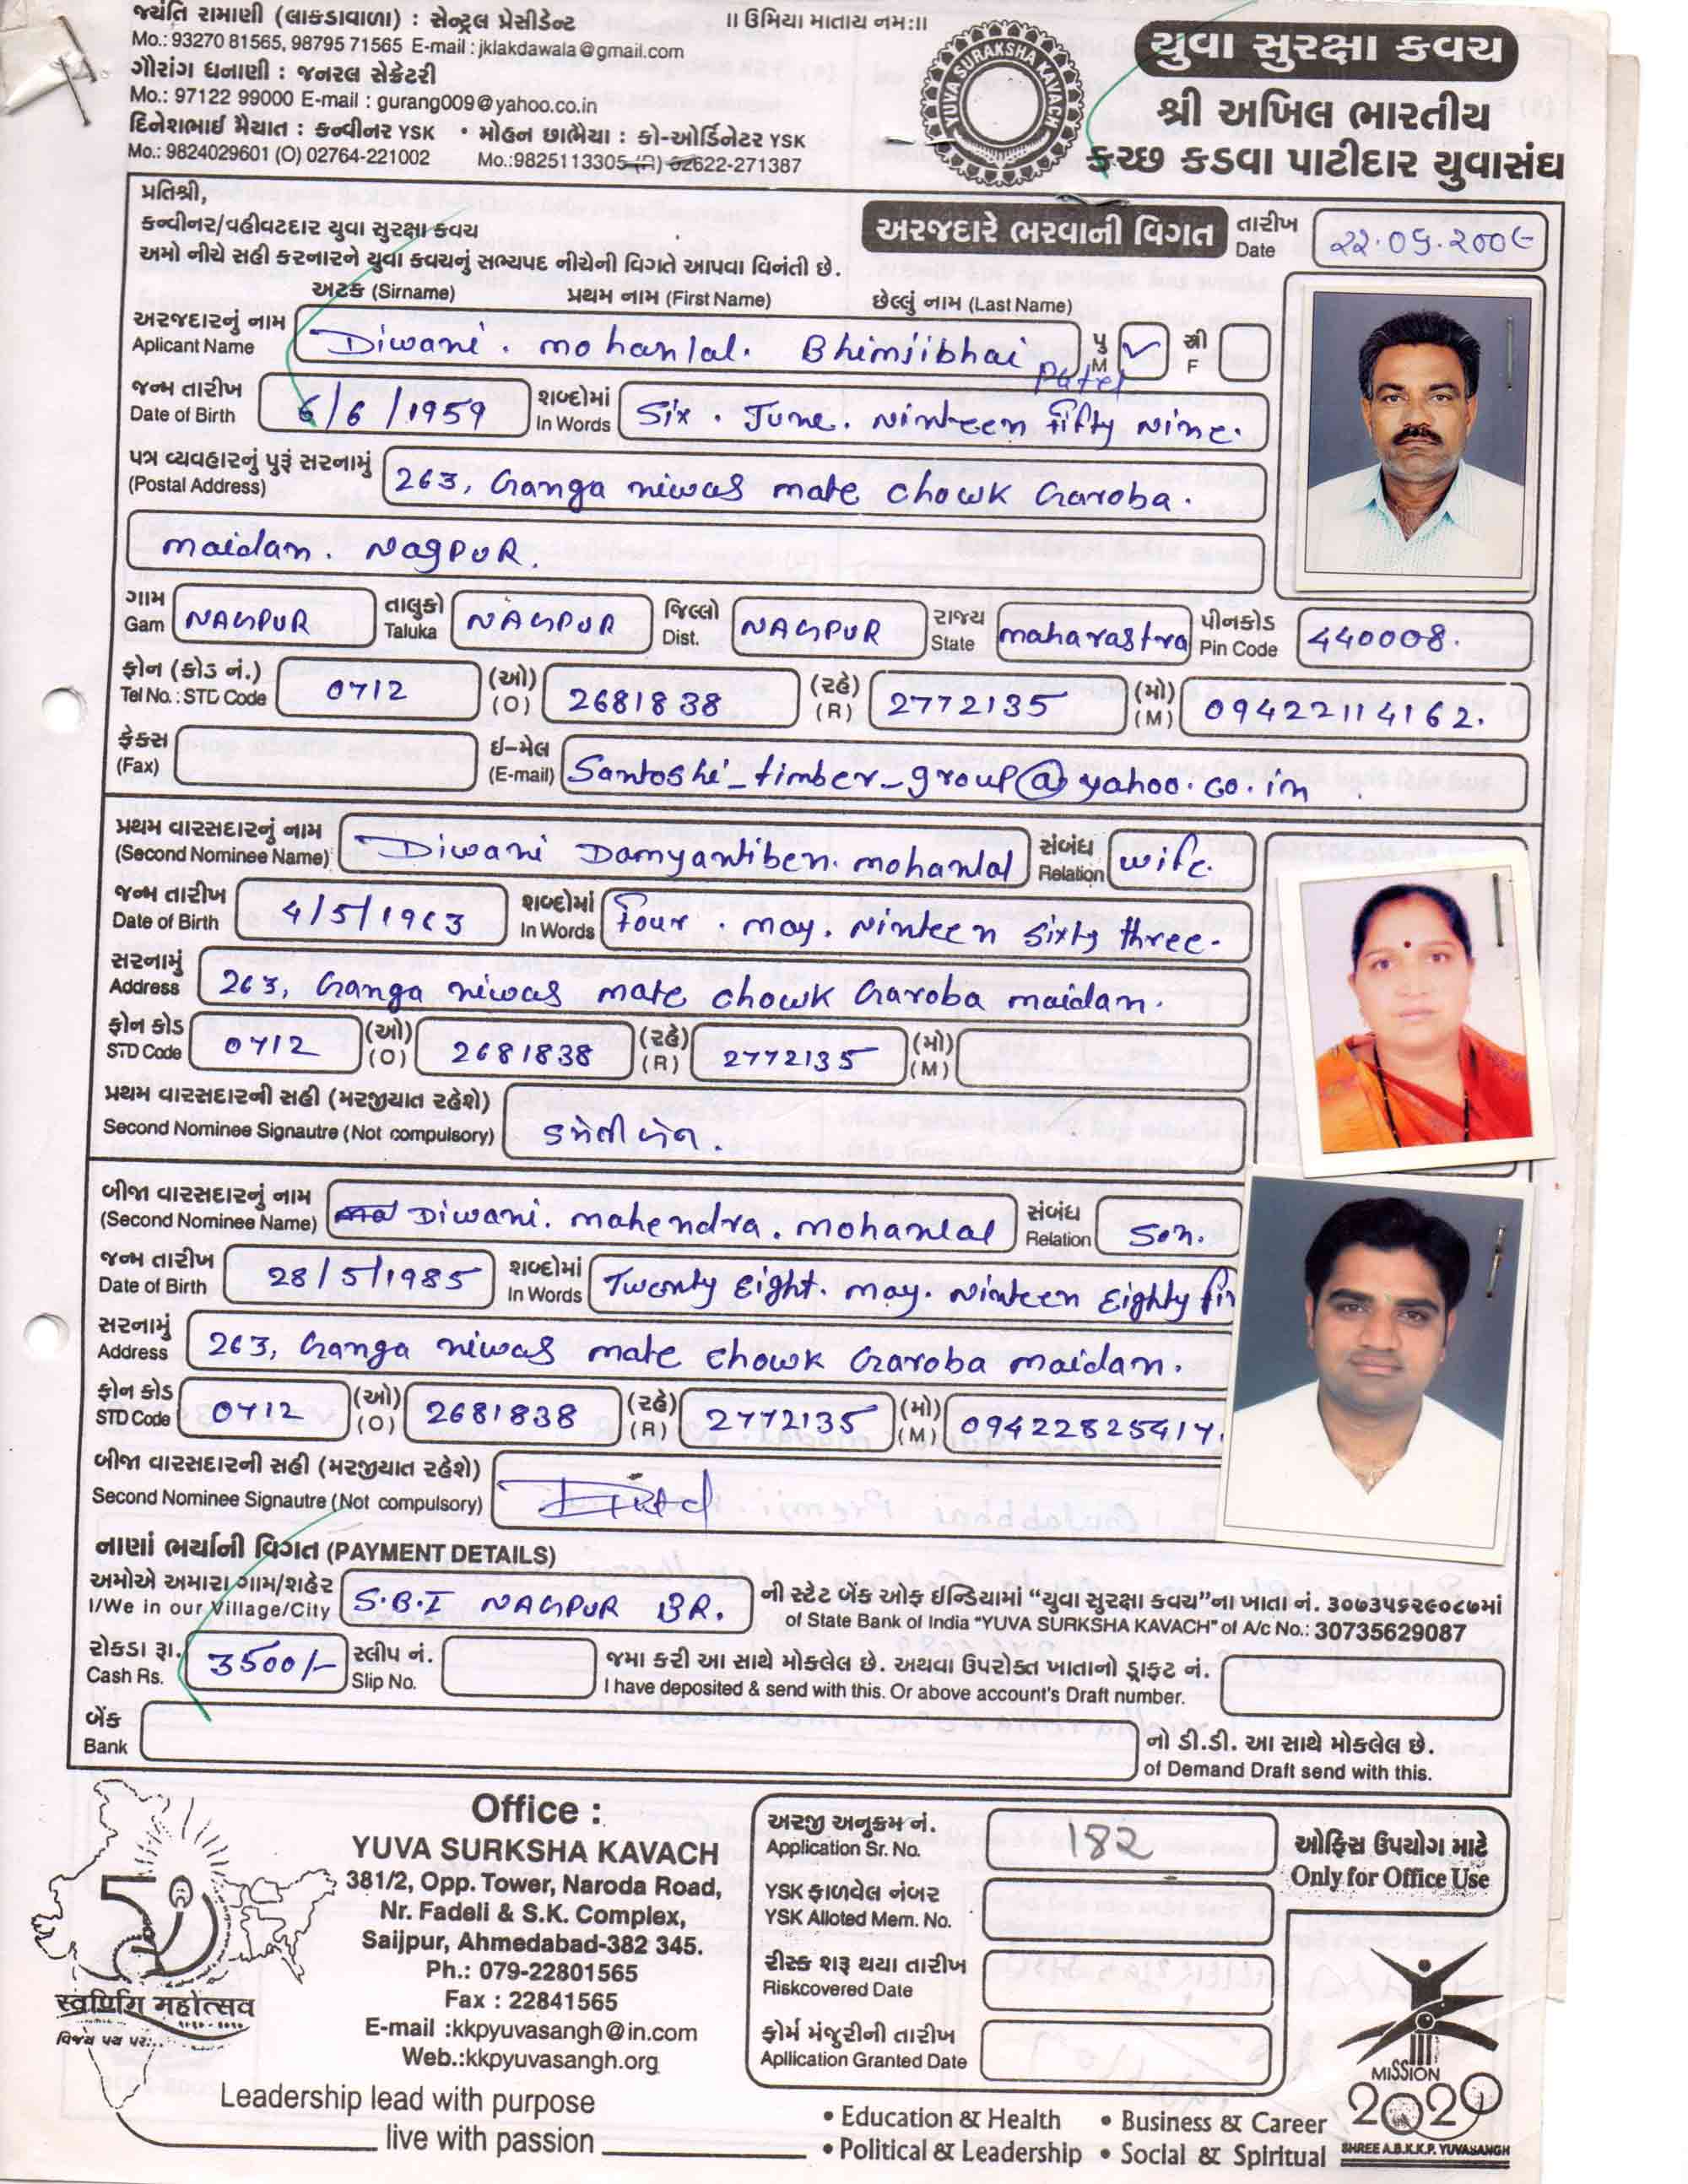 જયંતિ રામાણી (લાકડાવાળા) : સેન્ટ્રલ પ્રેસીડેન્ટ
Mo.: 93270 81565, 98795 71565 E-mail : jklakdawala@gmail.com
ગૌરાંગ ધનાણી : જનરલ સેક્રેટરી
Mo.: 97122 99000 E-mail : gurang009@yahoo.co.in
દિનેશભાઈ મૈયાત : કન્વીનર YSK • મોહન છાભૈયા : કો-ઓર્ડિનેટર YSK
Mo.: 9824029601 (O) 02764-221002 Mo.:9825113305 (R) 02622-271387
॥ ઉમિયા માતાય નમઃ॥
YUVA SURAKSHA KAVACH
યુવા સુરક્ષા કવચ
શ્રી અખિલ ભારતીય
કચ્છ કડવા પાટીદાર યુવાસંઘ
પ્રતિશ્રી,
કન્વીનર/વહીવટદાર યુવા સુરક્ષા કવચ
અમો નીચે સહી કરનારને યુવા કવચનું સભ્યપદ નીચેની વિગતે આપવા વિનંતી છે.
અરજદારે ભરવાની વિગત તારીખ Date 22.09.2009
અટક (Sirname) પ્રથમ નામ (First Name) છેલ્લું નામ (Last Name)
અરજદારનું નામ Aplicant Name Diwani . mohanlal. Bhimjibhai Patel પુ M ✓ સ્ત્રી F
જન્મ તારીખ Date of Birth 6/6/1959 શબ્દોમાં In Words Six . June. Ninteen fifty Nine.
પત્ર વ્યવહારનું પુરૂં સરનામું (Postal Address) 263, Ganga niwas mate chowk Garoba.
maidan. Nagpur.
ગામ Gam NAGPUR તાલુકો Taluka NAGPUR જિલ્લો Dist. NAGPUR રાજ્ય State maharastra પીનકોડ Pin Code 440008.
ફોન (કોડ નં.) Tel No. : STD Code 0712 (ઓ) (O) 2681838 (રહે) (R) 2772135 (મો) (M) 09422114162.
ફેક્સ (Fax) ઈ-મેલ (E-mail) Santoshi_timber_group@yahoo.co.in
પ્રથમ વારસદારનું નામ (Second Nominee Name) Diwani Damyantiben. mohanlal સંબંધ Relation wife.
જન્મ તારીખ Date of Birth 4/5/1963 શબ્દોમાં In Words four . may. Ninteen sixty three.
સરનામું Address 263, Ganga niwas mate chowk Garoba maidan.
ફોન કોડ STD Code 0712 (ઓ) (O) 2681838 (રહે) (R) 2772135 (મો) (M)
પ્રથમ વારસદારની સહી (મરજીયાત રહેશે)
Second Nominee Signautre (Not compulsory)
બીજા વારસદારનું નામ (Second Nominee Name) Diwani. mahendra. mohanlal સંબંધ Relation Son.
જન્મ તારીખ Date of Birth 28/5/1985 શબ્દોમાં In Words Twenty Eight. may. Ninteen Eighty fi
સરનામું Address 263, Ganga niwas mate chowk Garoba maidan.
ફોન કોડ STD Code 0712 (ઓ) (O) 2681838 (રહે) (R) 2772135 (મો) (M) 09422825417.
બીજા વારસદારની સહી (મરજીયાત રહેશે)
Second Nominee Signautre (Not compulsory)
નાણાં ભર્યાની વિગત (PAYMENT DETAILS)
અમોએ અમારા ગામ/શહેર S.B.I NAGPUR BR. ની સ્ટેટ બેંક ઓફ ઈન્ડિયામાં “યુવા સુરક્ષા કવચ”ના ખાતા નં. ૩૦૭૩૫૬૨૯૦૮૭માં
I/We in our Village/City of State Bank of India "YUVA SURKSHA KAVACH" of A/c No.: 30735629087
રોકડા રૂા. Cash Rs. 3500/- સ્લીપ નં. Slip No. જમા કરી આ સાથે મોકલેલ છે. અથવા ઉપરોક્ત ખાતાનો ડ્રાફ્ટ નં.
I have deposited & send with this. Or above account's Draft number.
બેંક Bank નો ડી.ડી. આ સાથે મોકલેલ છે.
of Demand Draft send with this.
50
स्वर्णिम महोत्सव
વિજય પથ પર...
Office :
YUVA SURKSHA KAVACH
381/2, Opp. Tower, Naroda Road,
Nr. Fadeli & S.K. Complex,
Saijpur, Ahmedabad-382 345.
Ph.: 079-22801565
Fax : 22841565
E-mail :kkpyuvasangh@in.com
Web.:kkpyuvasangh.org
Leadership lead with purpose
live with passion
અરજી અનુક્રમ નં. Application Sr. No. 182
ઓફિસ ઉપયોગ માટે
Only for Office Use
YSK ફાળવેલ નંબર
YSK Alloted Mem. No.
રીસ્ક શરૂ થયા તારીખ
Riskcovered Date
ફોર્મ મંજુરીની તારીખ
Apllication Granted Date
MISSION
2020
SHREE A.B.K.K.P. YUVASANGH
• Education & Health • Business & Career
• Political & Leadership • Social & Spiritual